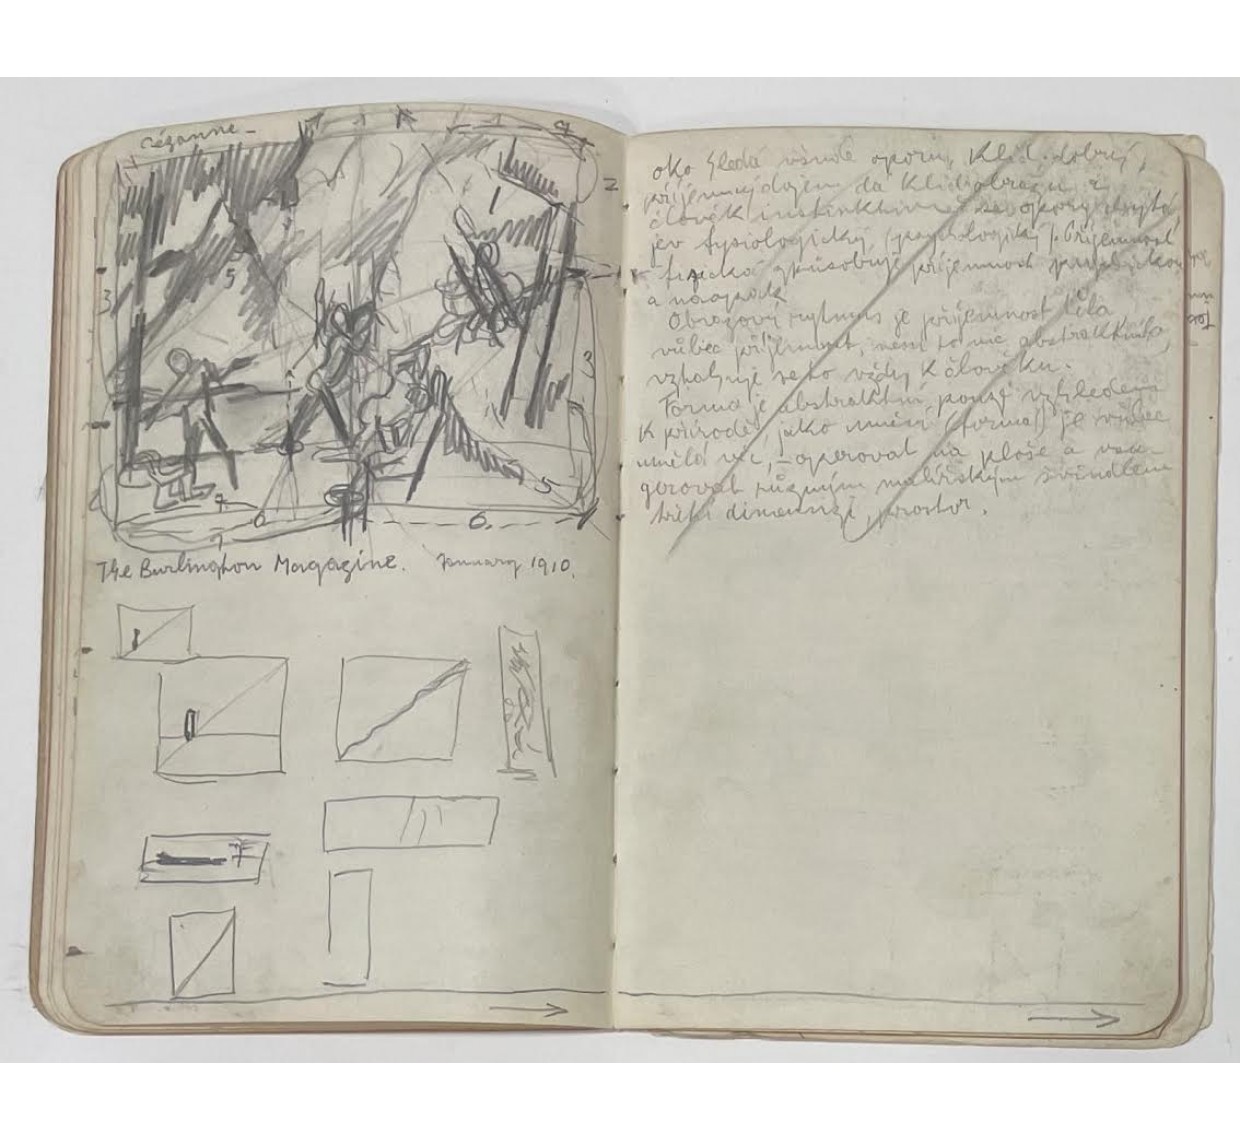 Cézanne –
2
1
5
3
3
5
6
6.
The Burlington Magazine. January 1910.
oko hledá všude oporu, Klid. dobrý,
příjemný dojem dá Klid obrazu a
člověk instinktivně se opory chytá,
jev fysiologický, (psychologický). Příjemnost
fysická způsobuje příjemnost psychickou
a naopak
Obrazový rytmus je příjemnost těla
vůbec příjemnost, není to nic abstraktního,
vztahuje se to vždy K člověku.
Forma je abstraktní pouze vzhledem
K přírodě, jako umění (forma) je vůbec
umělá věc, – operovat na ploše a
různým malířským švindlem
třetí dimensi, prostor.